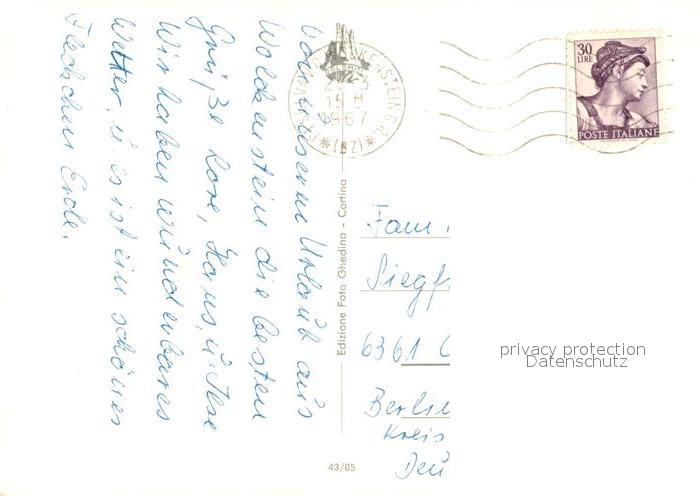 Von unserm Urlaub aus
Wolkenstein die besten
Grüße Lore, Hans, u. Ilse
Wir haben wunderbares
Wetter, u. es ist ein schönes
Fleckchen Erde.
Edizione Foto Ghedina - Cortina
43/05
WOLKENSTEIN
DOLOMITI
15 H
1967
(BZ)
30
LIRE
POSTE ITALIANE
Fam.
Siegf
6361
Berli
Kreis
Deu
privacy protection
Datenschutz